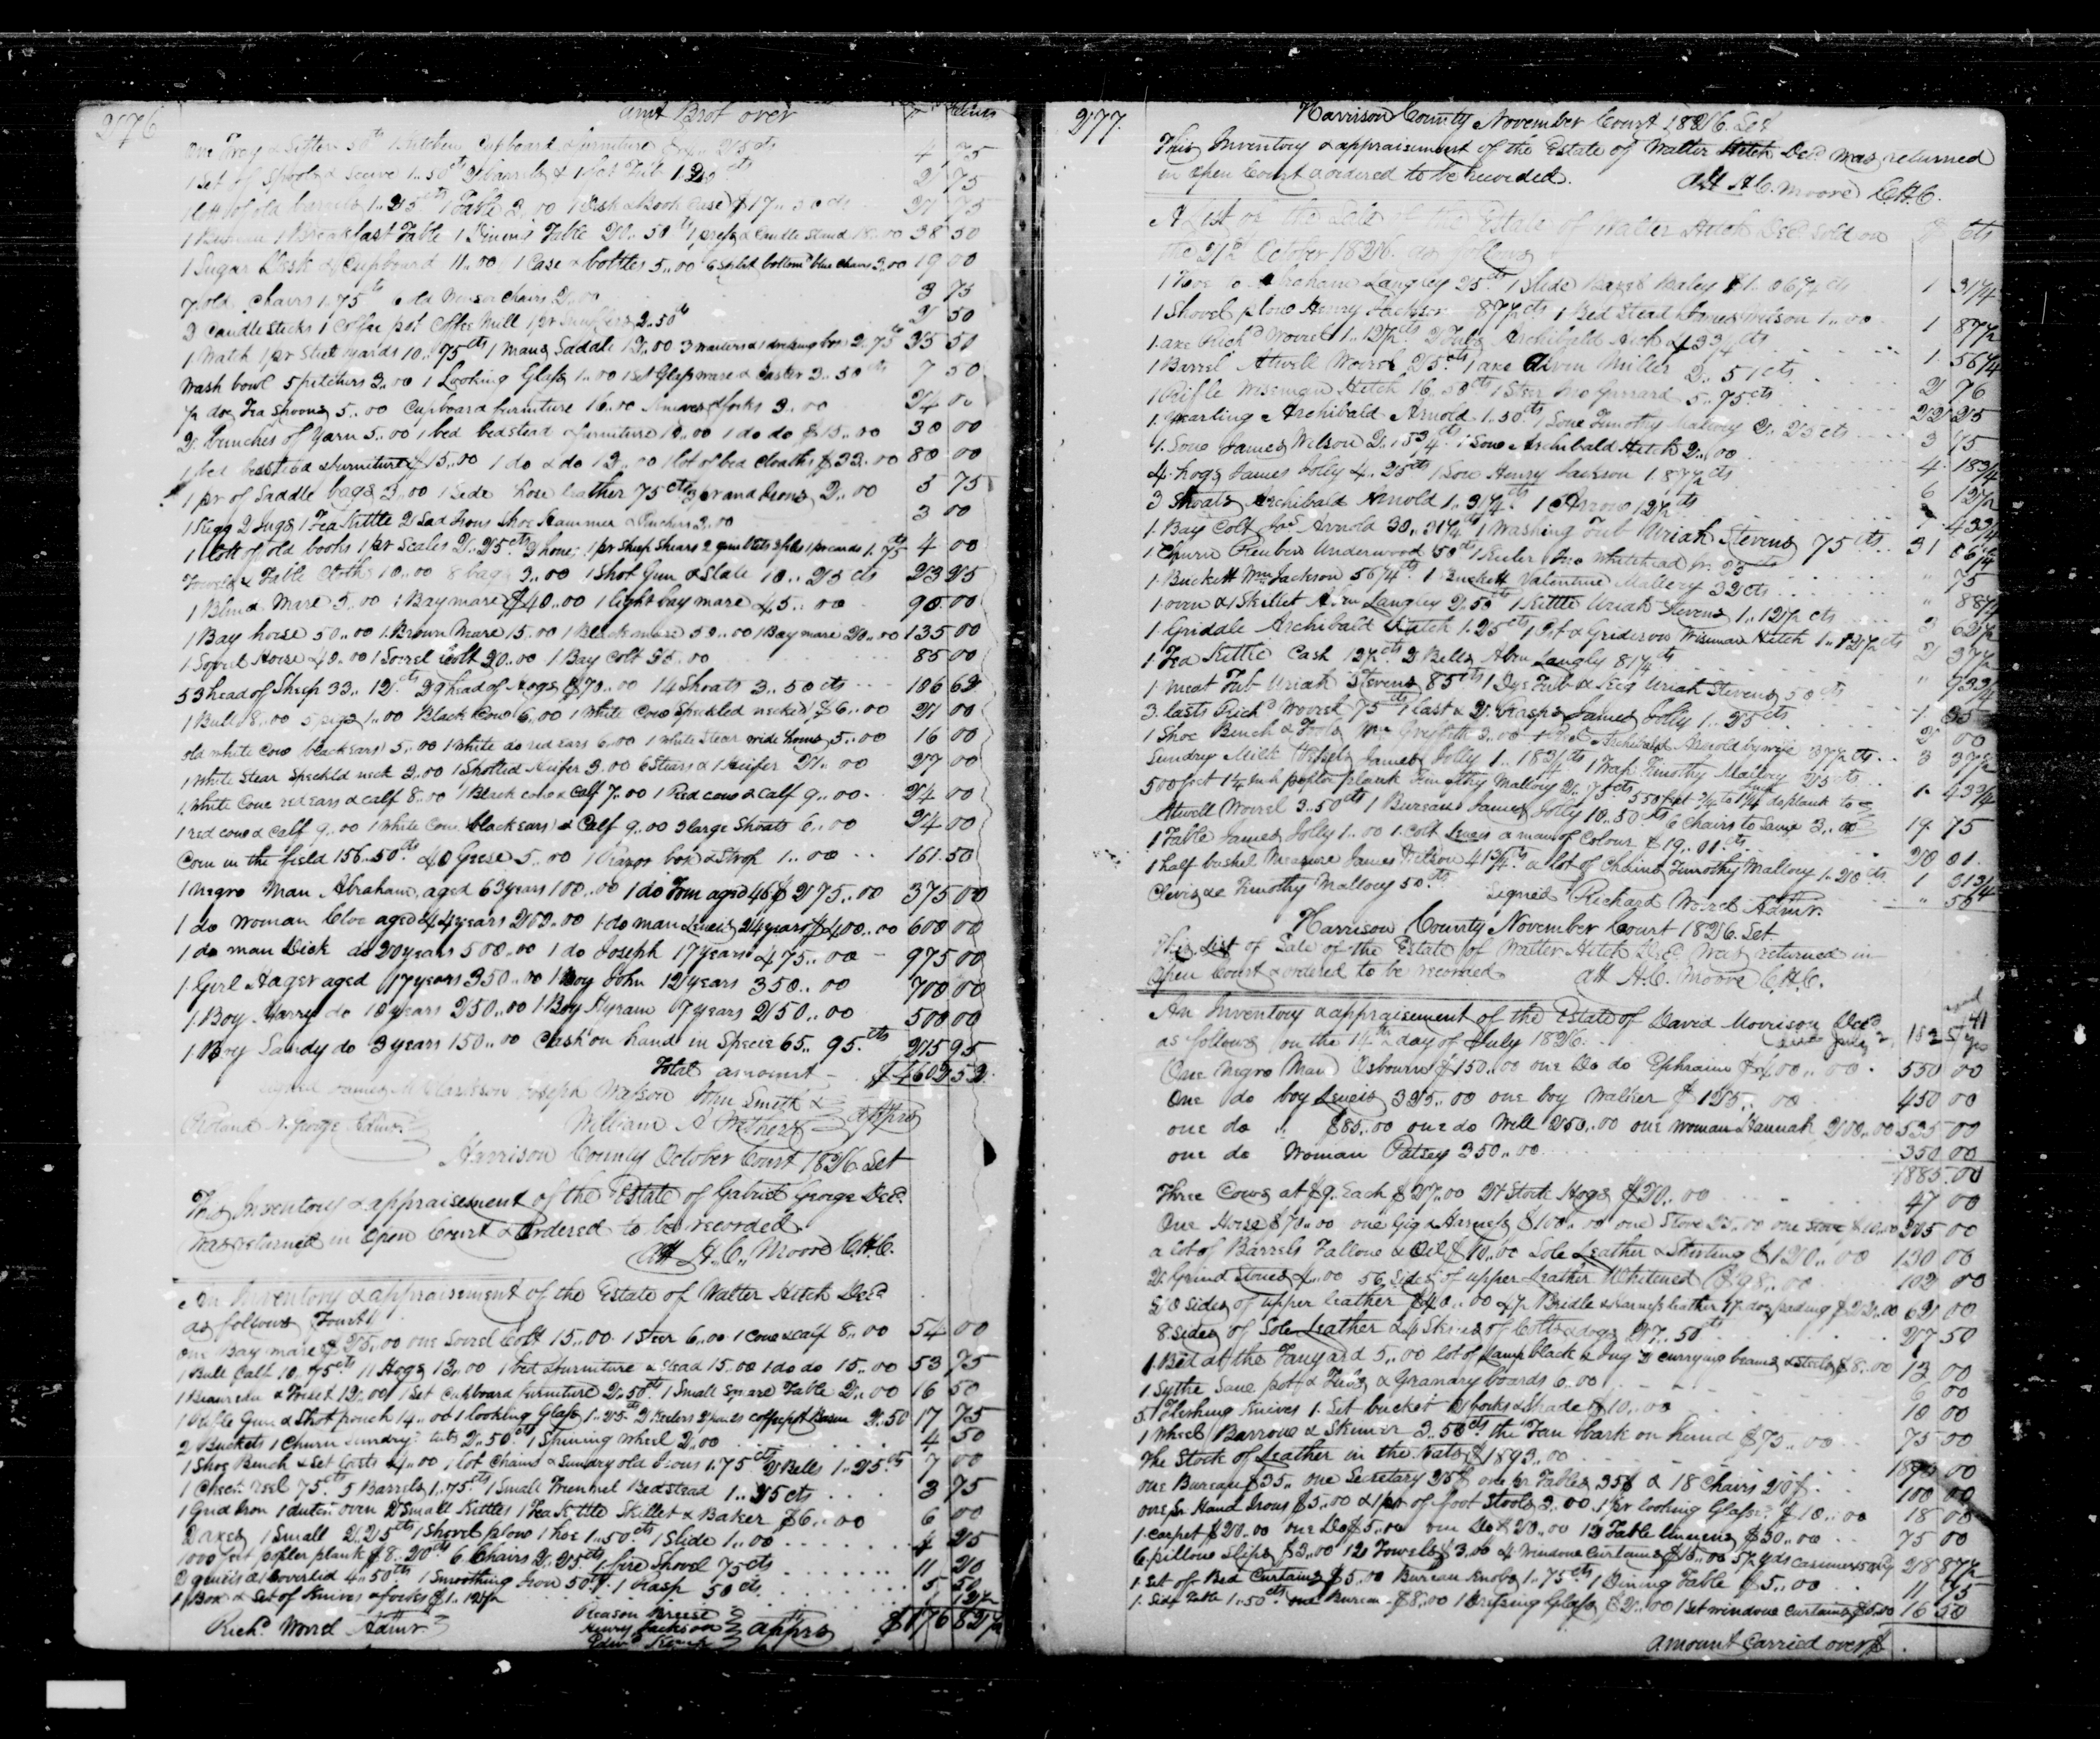 276
amt Brot over
One Tray & Sifters 50cts 1 Kitchen Cupboard & furniture 25cts 4 75
1 Set of Spools & 1..50cts 2 barrels & 1 Tub 2 75
1 lott of old barrels 1..25cts 1 Table 3..00 1 Desk & Book Case $17..50cts 21 75
1 Bureau 1 Breakfast Table 1 Dining Table 20..50cts 1 press & Candle Stand 18..00 38 50
1 Sugar Desk & Cupboard 11..00 1 Case & bottles 5..00 6 Split bottomd blue Chairs 3..00 19 00
7 old Chairs 1..75cts 6 old Winsor Chairs 2..00 3 75
3 Candle Sticks 1 Coffee pot Coffee Mill 1 pr Snuffers 2..50cts 2 50
1 Math 1 pr Steel yards 10..75cts 1 Mans Saddle 12..00 3 waiters & 1 drinking box 2..75cts 25 50
Wash bowl 5 pitchers 3..00 1 Looking Glass 1..00 1 Set Glassware & Caster 3..50cts 7 50
½ doz Tea Spoons 5..00 Cupboard furniture 16..00 knives & forks 3..00 24 00
2 bunches of Yarn 5..00 1 bed bedstead & furniture 10..00 1 do do $15..00 30 00
1 bed bedstead & furniture $15..00 1 do & do 12..00 1 lot of bed Cloaths $33..00 80 00
1 pr of Saddle bags 3..00 1 Side hose leather 75cts 2 pr and Irons 2..00 5 75
1 Kegg 2 Jugs 1 Tea Kettle 2 Sad Irons Shoe Hammer & Pinchers 3..00 3 00
1 lott of old books 1 pr Scales 2..25cts 3 hone; 1 pr Sheep Shears 2 gimblets 3 files 1 pr cards 1.75cts 4 00
Towels & Table Cloths 10..00 8 bags 3..00 1 Shot Gun & Slate 10..25cts 23 25
1 Blind Mare 5..00 1 Bay mare $40..00 1 light bay mare 45..00 90 00
1 Bay horse 50..00 1 Brown Mare 15..00 1 Black mare 50..00 1 Bay mare 20..00 135 00
1 Sorrel Horse 40..00 1 Sorrel Colt 20..00 1 Bay Colt 25..00 85 00
53 head of Sheep 33..12cts 39 head of Hogs $70..00 14 Shoats 3..50cts 106 62
1 Bull 8..00 5 pigs 1..00 Black Cow 6..00 1 White Cow Speckled necked $6..00 21 00
old white Cow black ears 5..00 1 White do red ears 6..00 1 white Stear wide horns 5..00 16 00
1 White Stear Speckld neck 3..00 1 Spotted Heifer 3..00 6 Stears & 1 Heifer 21..00 27 00
1 White Cow red ears & calf 8..00 1 Black cow & Calf 7..00 1 Red cow & Calf 9..00 24 00
1 red cow & Calf 9..00 1 White Cow black ears & Calf 9..00 3 large Shoats 6..00 24 00
Corn in the field 156..50cts 40 Geese 5..00 1 Razor box & Strop 1..00 161 50
1 negro Man Abraham, aged 63 years 100..00 1 do Tom aged 46 $275..00 375 00
1 do Woman Cloe aged 44 years 200..00 1 do man Lewis 24 years $400..00 600 00
1 do man Dick do 20 years 500..00 1 do Joseph 17 years 475..00 975 00
1 Girl Hager aged 17 years 350..00 1 Boy John 12 years 350..00 700 00
1 Boy Harry do 10 years 250..00 1 Boy Hyram 7 years 250..00 500 00
1 Boy Sandy do 3 years 150..00 Cash on hand in Specie 65..95cts 215 95
Total amount $4602 52
Joseph Watson John Smith &
Roland N. George Admr. William A Withers Apprs
Harrison County October Court 1826. Set
This Inventory & appraisement of the Estate of Gabriel George Decd
Was returned in Open Court & Ordered to be recorded
Att H.C. Moore C.H.C.
An Inventory & appraisement of the Estate of Walter Hitch Decd
as follows
one Bay mare $25..00 one Sorrel Colt 15..00 1 Steer 6..00 1 Cow & calf 8..00 54 00
1 Bull Calf 10..75cts 11 Hogs 13..00 1 bed & furniture & Stead 15..00 1 do do 15..00 53 75
1 Beaureau & 12..00 1 Set Cupboard furniture 2..50cts 1 Small Square Table 2..00 16 50
1 Rifle Gun & Shot pouch 14..00 1 looking Glass 1..25cts 2 coffeepot Bason 2.50 17 75
2 Buckets 1 Churn Sundry 2..50cts 1 Spining Wheel 2..00 4 50
1 Shoe Bench & Set Lasts 4..00 1 lot Chains & Sundry old Irons 1.75cts 2 Bells 1..25cts 7 00
1 Check reel 75cts 5 Barrels 1..75cts 1 Small Trunnel Bedstead 1..25cts 3 75
1 Grid Iron 1 dutch oven 2 Small Kettles 1 Tea Kettle Skillet & Baker $6..00 6 00
2 axes 1 Small 2.25cts 1 Shovel plow 1 hoe 1..50cts 1 Slide 1..00 4 25
1000 feet popler plank $8..20cts 6 Chairs 2..25cts 1 fire Shovel 75cts 11 20
& 1 Coverlid 4..50cts 1 Smoothing Iron 50cts 1 Rasp 50cts 5 50
1 Box & Set of Knives & forks $1..12½ 1 12½
Richd. Worrel Admr. Pleason Breese
Henry Jackson apprs $176 82½
277
Harrison County November Court 1826. Set
This Inventory & appraisement of the Estate of Walter Hitch Decd Was returned
in Open Court & ordered to be recorded. Att H.C. Moore C.H.C.
A list of the Sale of the Estate of Walter Hitch Decd Sold on $ cts
the 21st October 1826. as follows
1 Hoe to Abraham Langley 25cts 1 Slide Baley $1..06¼cts 1 31¼
1 Shovel plow Henry Jackson 87½cts 1 Bed Stead James Wilson 1..00 1 87½
1 axe Richd Worrel 1..12½cts 2 Tubs Archibald Hitch 43¾cts 1 56¼
1 Barrel Atwell Worrel 25cts 1 axe Alvin Miller 2..51cts 2 76
1 Rifle Wiseman Hitch 16..50cts 1 Steer Gerrard 5..75cts 22 25
1 Yearling Archibald Arnold 1.50cts 1 Sow Timothy Mallory 2..25cts 3 75
1 Sow James Wilson 2..18¾cts 1 Sow Archibald Hitch 2..00 4 18¾
4 hogs James Jolly 4..25cts 1 Sow Henry Jackson 1.87½cts 6 12½
3 Shoats Archibald Arnold 1..31¼cts 1 12½cts 1 43¾
1 Bay Colt Arnold 30..31¼cts 1 Washing Tub Uriah Stevens 75cts 31 06¼
1 Churn Reuben Underwood 50cts 1 Keeler Jno Whitehead 75
1 Buckett Wm Jackson 56¼cts 1 Buckett Valentine Mallery 32cts 88¼
1 oven & 1 Skillet Abm Langley 2..50cts 1 Kettle Uriah Stevens 1..12½cts 3 62½
1 Griddle Archibald Hitch 1.25cts 1 Pot & Grideron Wiseman Hitch 1..12½cts 2 37½
1 Tea Kettle Cash 12½cts 2 Bells Abm Langly 81¼cts " 93¾
1 meat Tub Uriah Stevens 85cts 1 Dye Tub & Keg Uriah Stevens 50cts 1 35
3 lasts Richd Worrel 75cts 1 last & 2 Rasps James Jolly 1..25cts 2 00
1 Shoe Bench & Tools Griffith 3..00 Archibald Arnold by wife 37½cts 3 37½
Sundry Milk Vessels James Jolly 1..18¾cts 1 Trap Timothy Mallory 25cts 1 43¾
500 feet 1¼ inch popler plank Timothy Mallory 2..75cts 550 feet ¾ to 1¼ inch do plank to
Atwell Worrel 3..50cts 1 Bureau James Jolly 10..50cts 6 Chairs to Same 3..00 19 75
1 Table James Jolly 1..00 1 Colt Lewis a man of Colour $19..01cts 20 01
1 half bushel Measure James Wilson 41¾cts a lot of Chains Timothy Mallory 1..20cts 1 31¾
Clevis &c Timothy Mallory 50cts Signed Richard Worrel Admr. " 50
Harrison County November Court 1826. Set
This List of Sale of the Estate of Walter Hitch Decd Was returned in
Open Court & ordered to be recorded Att H.C. Moore C.H.C.
An Inventory & appraisement of the Estate of David Morrison Decd
as follows on the 14th day of July 1826.
One Negro Man Osbourn $150..00 one Do do Ephraim $400..00 550 00
One do boy Lewis 325..00 one boy Walker $125..00 450 00
one do " $85..00 one do Will 250..00 one woman Hannah 200..00 535 00
one do Woman Patsey 350..00 350 00
1885 00
Three Cows at $9. Each $27..00 21 Stock Hogs $20..00 47 00
One Horse $70..00 one Gig & Harness $100..00 one Stove 25..00 one Stove $10..00 205 00
a lot of Barrels Tallow & Oil $10..00 Sole Leather & Skirting $120..00 130 00
2 Grind Stones 4..00 56 Sides of upper leather Whitened $98..00 102 00
20 sides of upper leather $40..00 4½ Bridle & Harness leather $22..00 62 00
8 sides of Sole Leather & 4 Skins of Colts & dogs 27..50cts 27 50
1 Bed at the Tanyard 5..00 lot of Lamp black & Jug 2 currying beams & steels $8..00 13 00
1 Sythe Sane pot & Tubs & Granary boards 6..00 6 00
5 Flishing Knives 1 Set bucket & Spade $10..00 10 00
1 Wheel Barrow & Skimmer 3..50cts the Tan bark on hand $75..00 75 00
The Stock of Leather in the Vats $1893..00 1893 00
one Bureau $35.. one Secretary 25$ one pr Tables 35$ & 18 Chairs 20$ 100 00
one pr Hand Irons $5..00 & 1 pr of foot Stools 3..00 1 pr looking Glasses $10..00 18 00
1 Carpet $20..00 one Do $5..00 one Do $20..00 12 Table linnens $30..00 75 00
6 pillow Slips $3..00 12 Towels $3..00 4 Window Curtains $15..00 5½ yds 28 87½
1 Set of Bed Curtains $5..00 Bureau Knobs 1..75cts 1 Dining Table $5..00 11 75
1 Side Table 1..50cts one Bureau $8..00 1 Dressing Glass $2..00 1 Set window Curtains $5.00 16 50
Amount Carried over $